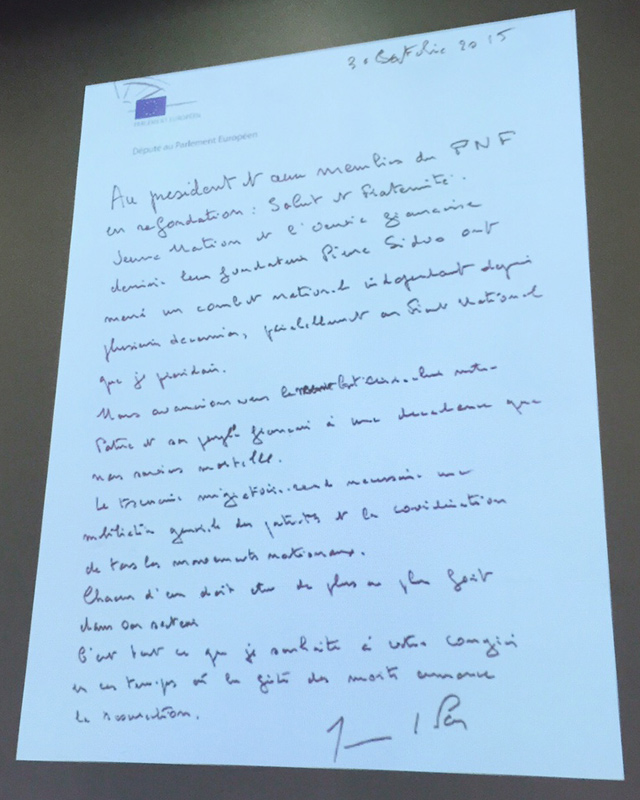 31 Octobre 2015
PARLEMENT EUROPÉEN
Député au Parlement Européen
Au président et aux membres du PNF
en refondation : Salut et Fraternité.
Jeune Nation et l'Oeuvre française
derrière leur fondateur Pierre Sidos ont
mené un combat national indépendant depuis
plusieurs décennies, parallèlement au Front National
que je présidais.
Nous avancions vers le même but : arracher notre
Patrie et son peuple français à une décadence que
nous savions mortelle.
Le tsunami migratoire rend nécessaire une
mobilisation générale des patriotes et la coordination
de tous les mouvements nationaux.
Chacun d'eux doit être de plus en plus fort
dans son secteur
C'est tout ce que je souhaite à votre congrès
en ces temps où la fête des morts annonce
la résurrection.